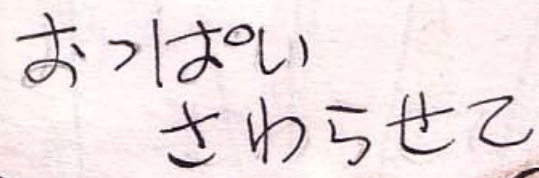 おっぱい
さわらせて